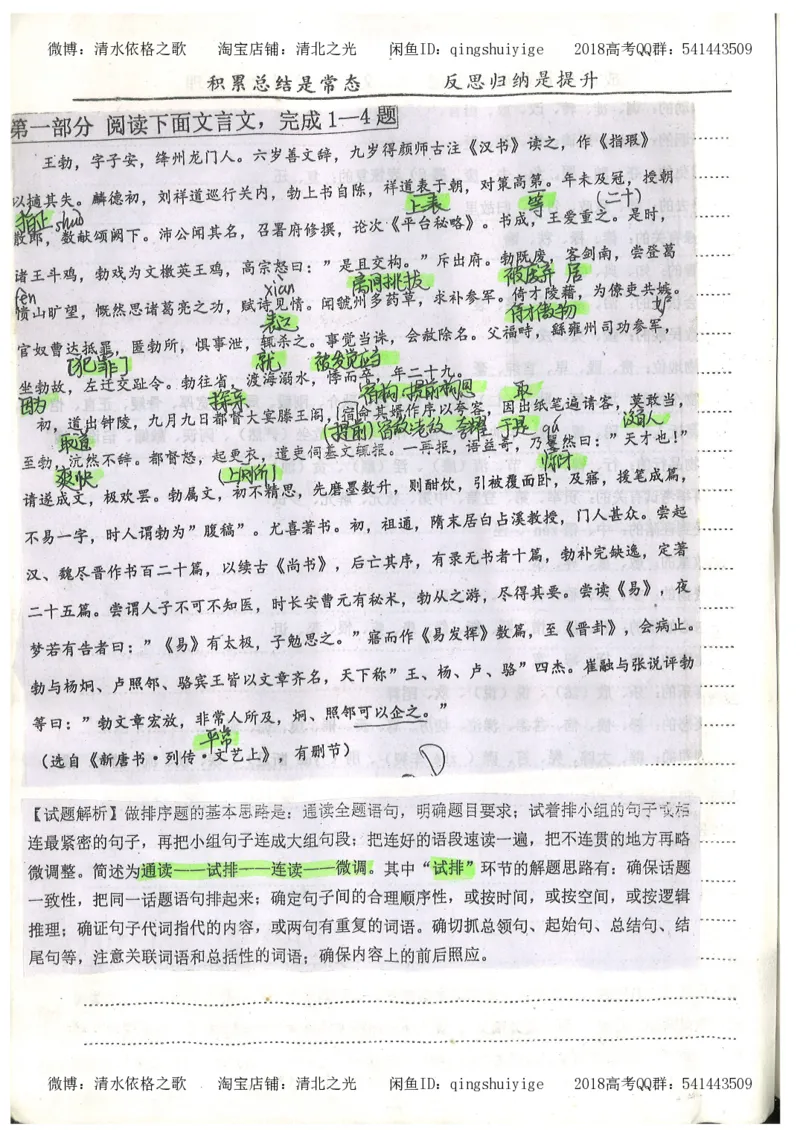 微博：清水依格之歌 淘宝店铺：清北之光 闲鱼ID：qingshuiyige 2018高考QQ群：541443509
积累总结是常态 反思归纳是提升
第一部分 阅读下面文言文，完成1—4题
王勃，字子安，绛州龙门人。六岁善文辞，九岁得颜师古注《汉书》读之，作《指瑕》
以擿其失。麟德初，刘祥道巡行关内，勃上书自陈，祥道表于朝，对策高第。年未及冠，授朝
指正 上表 等 (二十)
散郎，数献颂阙下。沛公闻其名，召署府修撰，论次《平台秘略》。书成，王爱重之。是时，
诸王斗鸡，勃戏为文檄英王鸡，高宗怒曰：”是且交构。”斥出府。勃既废，客剑南，尝登葛
离间挑拨 被废弃 居
fén xiàn
愦山旷望，慨然思诸葛亮之功，赋诗见情。闻虢州多药草，求补参军。倚才陵藉，为僚吏共嫉。
表现 恃才傲物
官奴曹达抵罪，匿勃所，惧事泄，辄杀之。事觉当诛，会赦除名。父福畤，繇雍州司功参军，
[犯罪] 就 被发觉
坐勃故，左迁交趾令。勃往省，渡海溺水，悸而卒，年二十九。
因为 探亲 宿构：提前构思 取
初，道出钟陵，九月九日都督大宴滕王阁，宿命其婿作序以夸客，因出纸笔遍请客，莫敢当，
取道 (提前) 夸耀 于是 没有人
至勃，沆然不辞。都督怒，起更衣，遣吏伺其文辄报。一再报，语益奇，乃矍然曰：”天才也！”
爽快 (上厕所)
请遂成文，极欢罢。勃属文，初不精思，先磨墨数升，则酣饮，引被覆面卧，及寤，援笔成篇，
不易一字，时人谓勃为”腹稿”。尤喜著书。初，祖通，隋末居白占溪教授，门人甚众。尝起
汉、魏尽晋作书百二十篇，以续古《尚书》，后亡其序，有录无书者十篇，勃补完缺逸，定著
二十五篇。尝谓人子不可不知医，时长安曹元有秘术，勃从之游，尽得其要。尝读《易》，夜
梦若有告者曰：”《易》有太极，子勉思之。”寤而作《易发挥》数篇，至《晋卦》，会病止。
勃与杨炯、卢照邻、骆宾王皆以文章齐名，天下称”王、杨、卢、骆”四杰。崔融与张说评勃
等曰：”勃文章宏放，非常人所及，炯、照邻可以企之。”
平常
（选自《新唐书·列传·文艺上》，有删节）
D
【试题解析】做排序题的基本思路是：通读全题语句，明确题目要求；试着排小组的句子或相
连最紧密的句子，再把小组句子连成大组句段；把连好的语段速读一遍，把不连贯的地方再略
微调整。简述为通读——试排——连读——微调。其中“试排”环节的解题思路有：确保话题
一致性，把同一话题语句排起来；确定句子间的合理顺序性，或按时间，或按空间，或按逻辑
推理；确证句子代词指代的内容，或两句有重复的词语。确切抓总领句、起始句、总结句、结
尾句等，注意关联词语和总括性的词语；确保内容上的前后照应。
微博：清水依格之歌 淘宝店铺：清北之光 闲鱼ID：qingshuiyige 2018高考QQ群：541443509